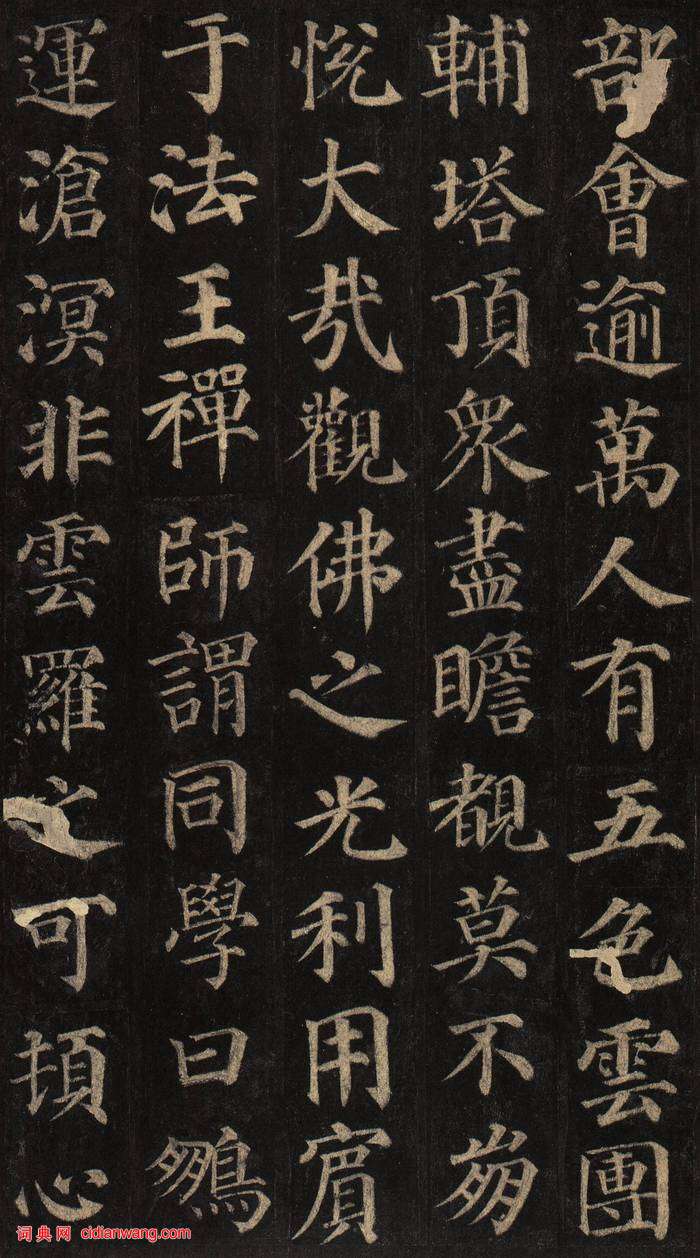 部會逾萬人有五色雲團
輔塔頂眾盡瞻覩莫不崩
悅大哉觀佛之光利用賓
于法王禪師謂同學曰鵬
運滄溟非雲羅之可頓心
词典网 cidianwang.com